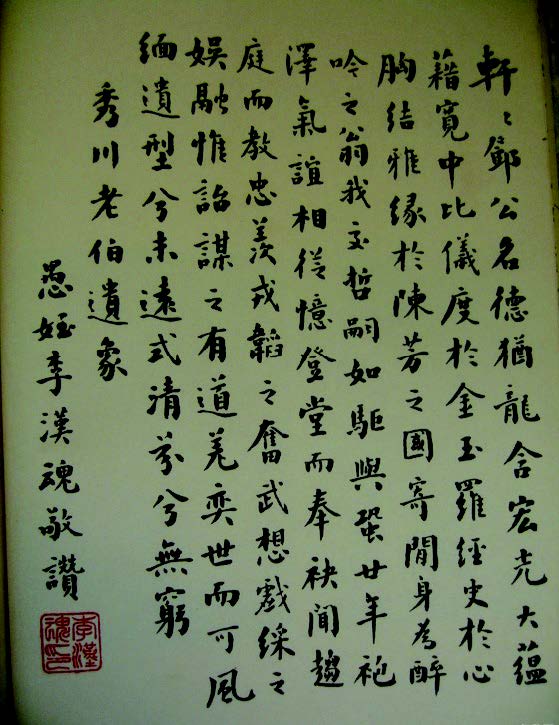 軒〻鄧公名德猶龍含宏光大蘊
藉寬中比儀度於金玉羅經史於心
胸結雅緣於陳芳之國寄閒身為醉
吟之翁我交哲嗣如駏與蛩廿年袍
澤氣誼相從憶登堂而奉袂聞趨
庭而教忠羨戎韜之奮武想戲綵之
娛融惟詒謀之有道羌奕世而可風
緬遺型兮未遠式清芬兮無窮
秀川老伯遺象
愚姪李漢魂敬讚
李漢魂印